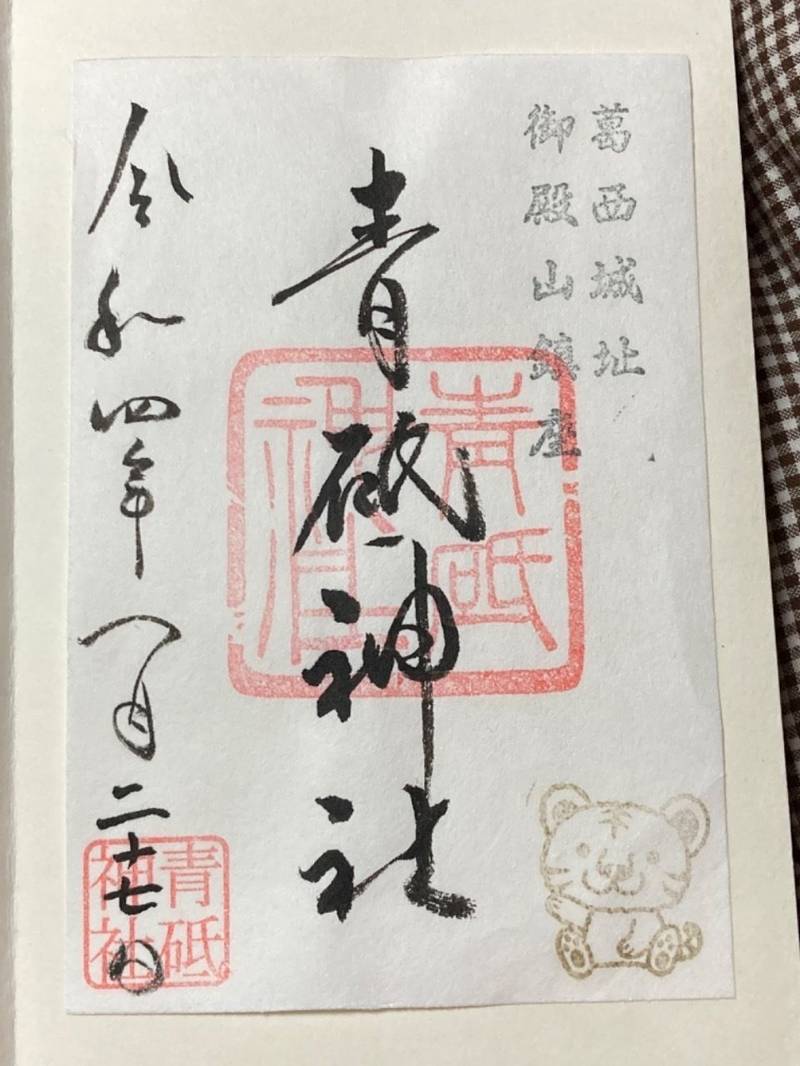 葛西城址
御殿山鎮座
青砥神社
青砥
神社
令和四年八月二十七日
青砥
神社